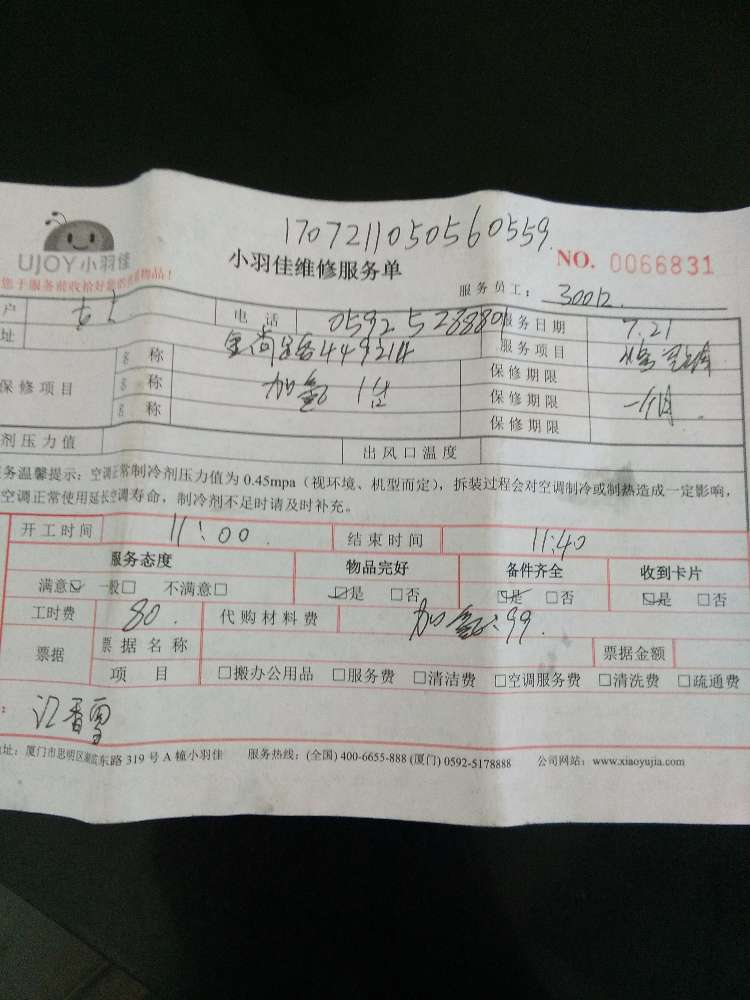 1707211050560559
UJOY小羽佳
小羽佳维修服务单
NO. 0066831
您于服务前收拾好您的贵重物品！
服务员工：
户 电话 0592 服务日期 7.21
址 服务项目
保修项目 名称 保修期限
名称 加氟 1台 保修期限 一个月
名称 保修期限
剂压力值 出风口温度
务温馨提示：空调正常制冷剂压力值为 0.45mpa（视环境、机型而定），拆装过程会对空调制冷或制热造成一定影响，
空调正常使用延长空调寿命，制冷剂不足时请及时补充。
开工时间 11:00 结束时间 11:40
服务态度 物品完好 备件齐全 收到卡片
满意☑ 一般□ 不满意□ ☑是 □否 ☑是 □否 ☑是 □否
工时费 80. 代购材料费 加氟:99.
票据 票据名称 票据金额
项目 □搬办公用品 □服务费 □清洁费 □空调服务费 □清洗费 □疏通费
址：厦门市思明区湖滨东路 319 号 A 幢小羽佳 服务热线：(全国) 400-6655-888 (厦门) 0592-5178888 公司网站：www.xiaoyujia.com